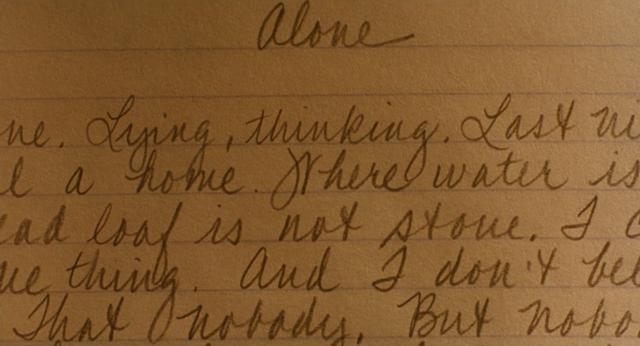 Alone
ne. Lying, thinking. Last ni
l a home. Where water is
ead loaf is not stone. I c
ne thing. And I don't bel
That nobody, But nobo